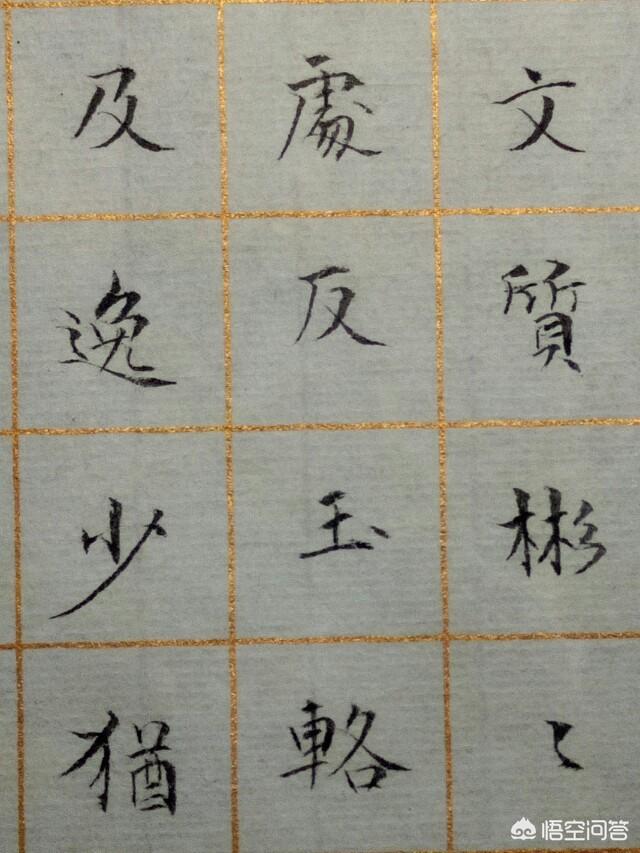 文質彬〻
處反玉輅
及逸少猶
悟空问答